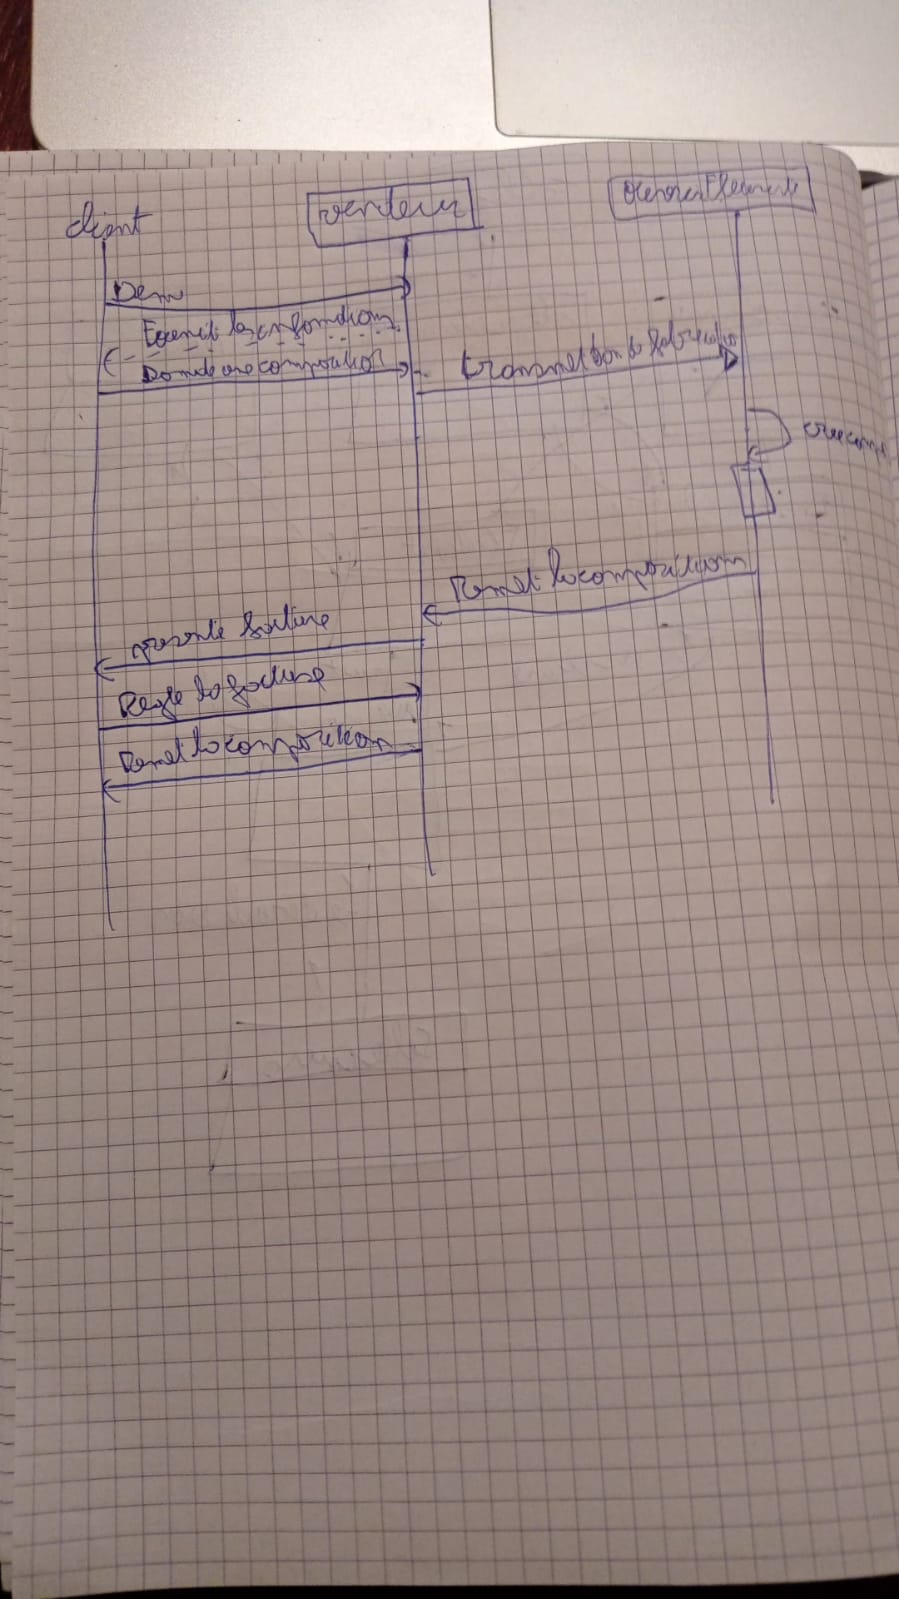 client
vendeur
Dem
Fournit les informations
Demande une composition
transmet bon de fabrication
Remet la composition
présente facture
Regle la facture
Remet la composition